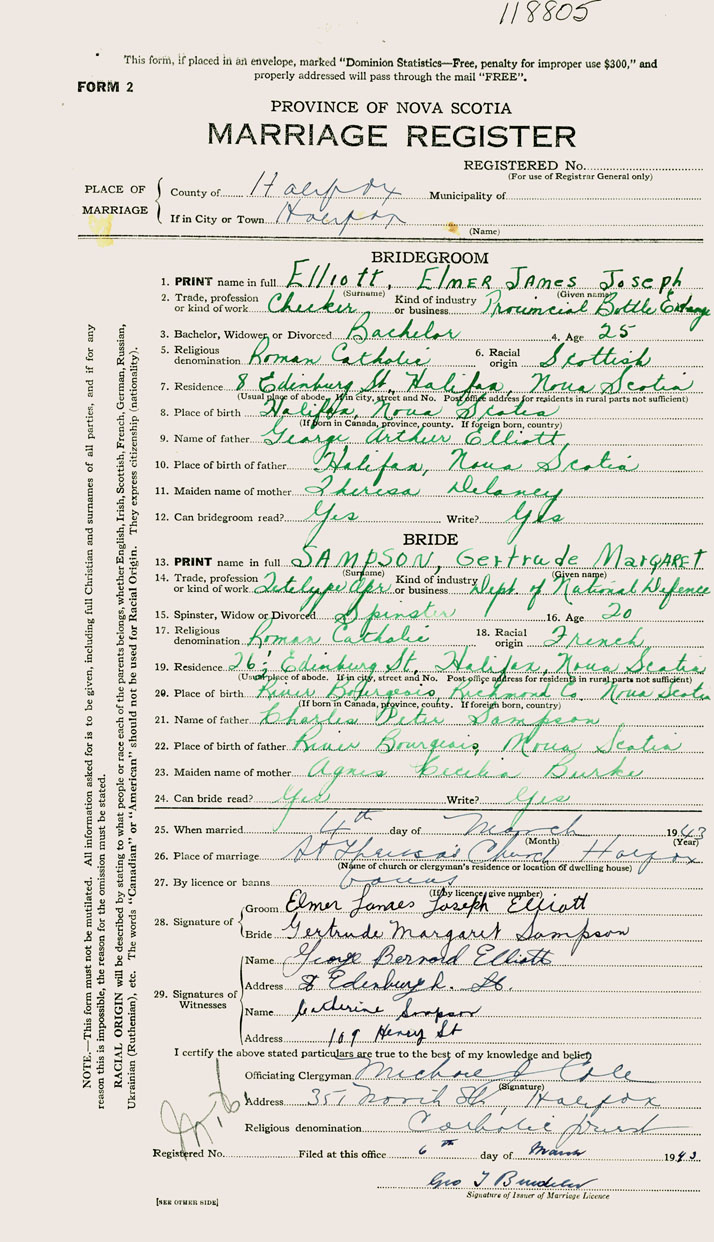 118805
This form, if placed in an envelope, marked "Dominion Statistics—Free, penalty for improper use $300," and
properly addressed will pass through the mail "FREE".
FORM 2
PROVINCE OF NOVA SCOTIA
MARRIAGE REGISTER
REGISTERED No.
(For use of Registrar General only)
PLACE OF MARRIAGE
County of Halifax Municipality of
If in City or Town Halifax
(Name)
BRIDEGROOM
1. PRINT name in full Elliott, Elmer James Joseph
(Surname) (Given name)
2. Trade, profession or kind of work Checker Kind of industry or business Provincial Bottle Exchange
3. Bachelor, Widower, or Divorced Bachelor 4. Age 25
5. Religious denomination Roman Catholic 6. Racial origin Scottish
7. Residence 8 Edinburg St, Halifax, Nova Scotia
(Usual place of abode. If in city, street and No. Post office address for residents in rural parts not sufficient)
8. Place of birth Halifax, Nova Scotia
(If born in Canada, province, county. If foreign born, country)
9. Name of father George Arthur Elliott
10. Place of birth of father Halifax, Nova Scotia
11. Maiden name of mother Theresa Delaney
12. Can bridegroom read? Yes Write? Yes
BRIDE
13. PRINT name in full SAMPSON, Gertrude MARGARET
(Surname) (Given name)
14. Trade, profession or kind of work Teletype Opr. Kind of industry or business Dept. of National Defence
15. Spinster, Widow or Divorced Spinster 16. Age 20
17. Religious denomination Roman Catholic 18. Racial origin French
19. Residence Edinburg St, Halifax, Nova Scotia
(Usual place of abode. If in city, street and No. Post office address for residents in rural parts not sufficient)
20. Place of birth River Bourgeois, Richmond Co. Nova Scotia
(If born in Canada, province, county. If foreign born, country)
21. Name of father Charles Peter Sampson
22. Place of birth of father River Bourgeois, Nova Scotia
23. Maiden name of mother Agnes Cecilia Burke
24. Can bride read? Yes Write? Yes
25. When married 4th day of March 1943
(Month) (Year)
26. Place of marriage St Theresa's Church Halifax
(Name of church or clergyman's residence or location of dwelling house)
27. By licence or banns banns
(If by licence, give number)
28. Signature of
Groom Elmer James Joseph Elliott
Bride Gertrude Margaret Sampson
29. Signatures of Witnesses
Name George Bernard Elliott
Address 8 Edinburgh. St.
Name Catherine Sampson
Address 109 Henry St
I certify the above stated particulars are true to the best of my knowledge and belief
Officiating Clergyman Michael J Cole
(Signature)
Address 351 North St, Halifax
Religious denomination Catholic priest
Registered No. Filed at this office 6th day of March 1943
Geo T
Signature of Issuer of Marriage Licence
[SEE OTHER SIDE]
NOTE.—This form must not be mutilated. All information asked for is to be given, including full Christian and surnames of all parties, and if for any
reason this is impossible, the reason for the omission must be stated.
RACIAL ORIGIN will be described by stating to what people or race each of the parents belongs, whether English, Irish, Scottish, French, German, Russian,
Ukrainian (Ruthenian), etc. The words "Canadian" or "American" should not be used for Racial Origin. They express citizenship (nationality).